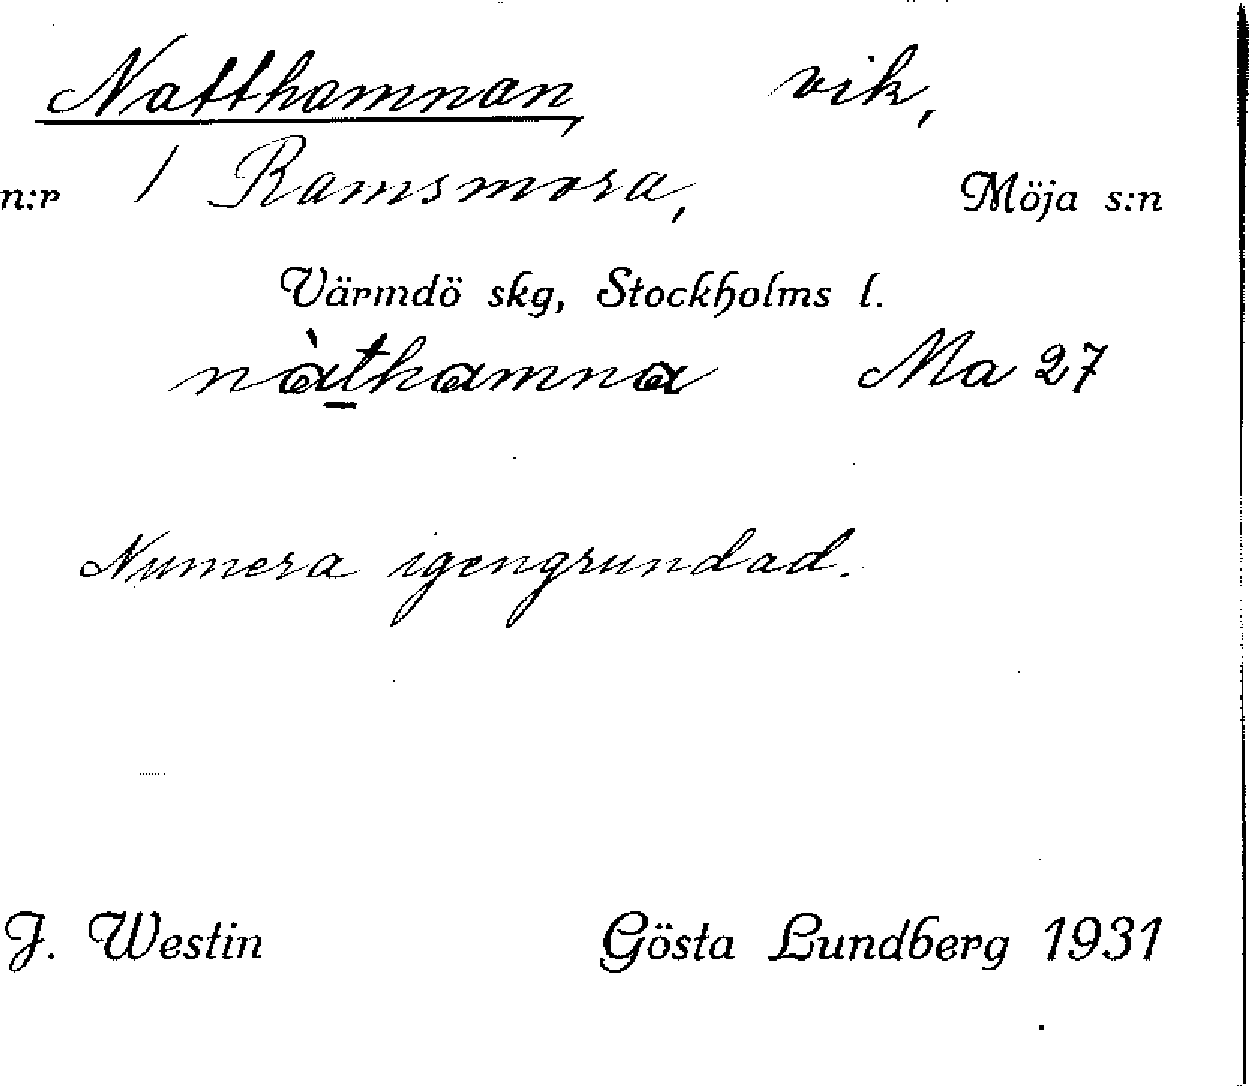 Natthamnan, vik,
n:r 1 Ramsmora, Möja s:n
Värmdö skg, Stockholms l.
nàt̲hamna Ma 27
Numera igengrundad.
J. Westin Gösta Lundberg 1931